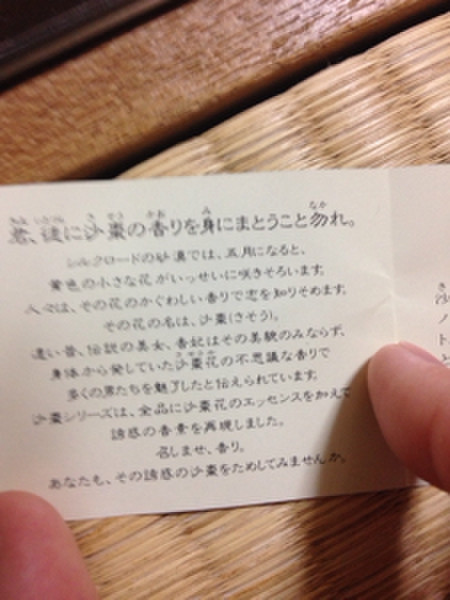 君、徒に沙棗の香りを身にまとうこと勿れ。
シルクロードの砂漠では、五月になると、
黄色の小さな花がいっせいに咲きそろいます。
人々は、その花のかぐわしい香りで恋を知りそめます。
その花の名は、沙棗(さそう)。
遠い昔、伝説の美女、香妃はその美貌のみならず、
身体から発していた沙棗花の不思議な香りで
多くの男たちを魅了したと伝えられています。
沙棗シリーズは、全品に沙棗花のエッセンスを加えて
誘惑の香素を再現しました。
召しませ、香り。
あなたも、その誘惑の沙棗をためしてみませんか。